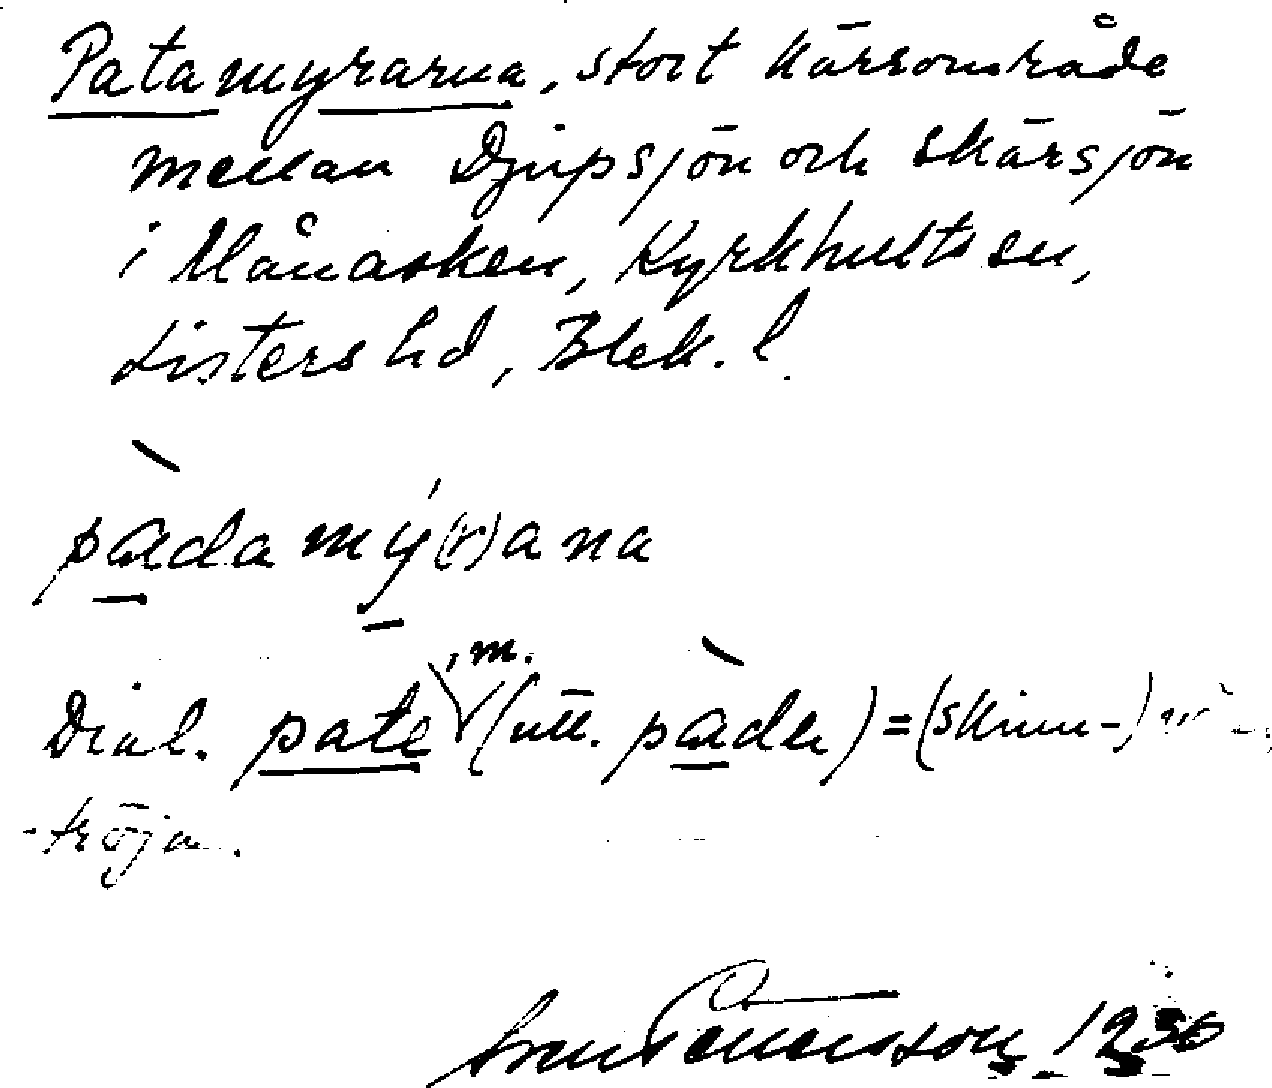 Patamyrarna, stort kärrområde
mellan Djupsjön och Skärsjön
i Månasken, Kyrkhults sn,
Listers hd, Blek. l.
pàdamý(r)ana
Dial. pate, m. (utt. pàde) = (skinn-)
-tröja.
Sven 1930